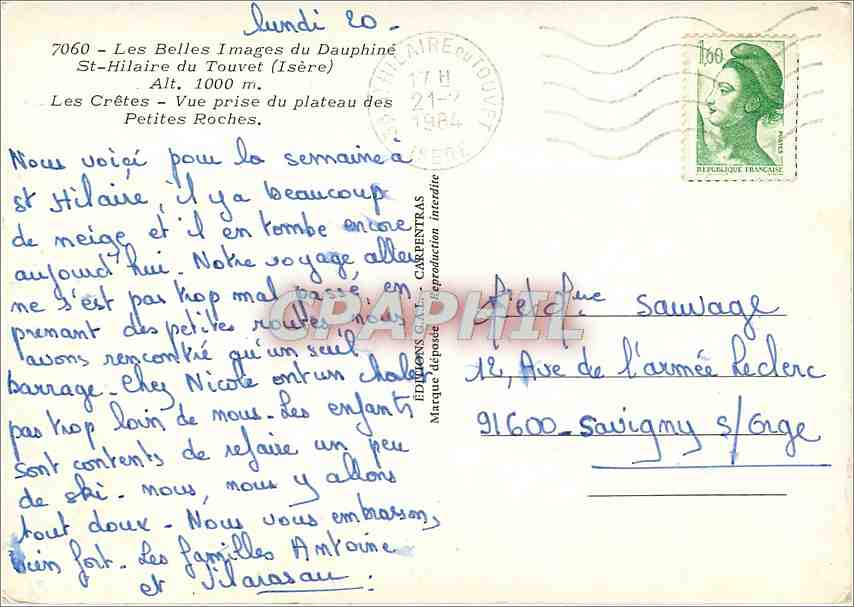 lundi 20 -
7060 - Les Belles Images du Dauphiné
St-Hilaire du Touvet (Isère)
Alt. 1000 m.
Les Crêtes - Vue prise du plateau des
Petites Roches.
Nous voiçi pour la semaine à
st Hilaire, il y a beaucoup
de neige et il en tombe encore
aujourd'hui. Notre voyage, aller
ne s'est pas trop mal passé, en
prenant des petites routes nous
avons rencontré qu'un seul
barrage. Chez Nicole ont un chalet
pas trop loin de nous. Les enfants
sont contents de refaire un peu
de ski. nous, nous y allons
tout doux. Nous vous embrassons,
bien fort. Les familles Antoine
et
ÉDITIONS G.A.L. - CARPENTRAS
Marque déposée Reproduction interdite
CPAPHIL
ST HILAIRE DU TOUVET
17 H
21-2
1984
ISERE
1,60
POSTES
REPUBLIQUE FRANÇAISE
Sauvage
12, Ave de l'armée Leclerc
91600 - Savigny s/Orge